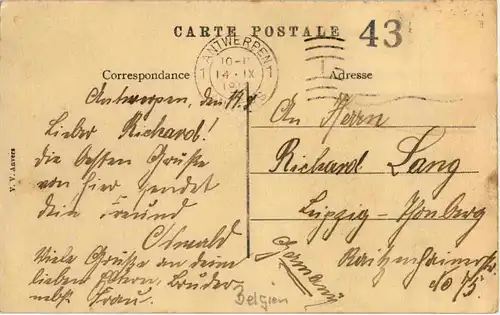 CARTE POSTALE 43
ANTWERPEN
14 IX
Correspondance
Adresse
V. V. Anvers
Antwerpen, den
Lieber Richard!
die besten Grüße
von hier sendet
dein Freund
Oswald
Viele Grüße an deine
lieben Eltern, Bruder
nebst Frau.
An Herrn
Richard Lang
Leipzig-Thonberg
Reitzenhainerstr
No 75.
Germany
Belgien